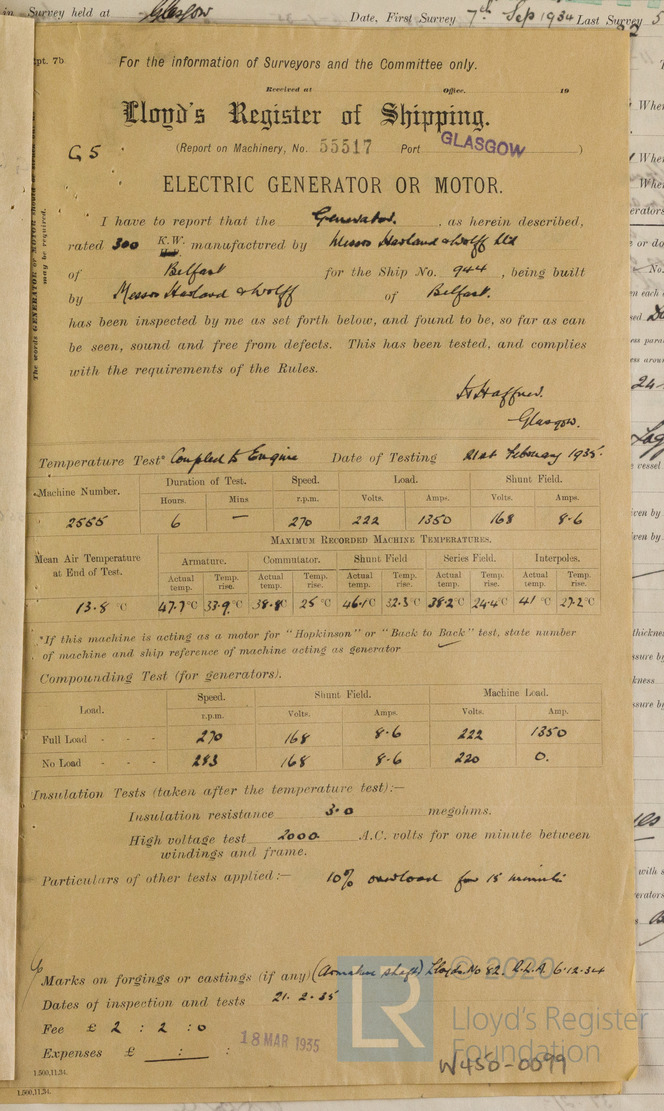 in Survey held at Glasgow Date, First Survey 7th Sep 1934 Last Survey 5
Rpt. 7b.
For the information of Surveyors and the Committee only.
Received at Office. 19
Lloyd's Register of Shipping.
G 5 (Report on Machinery, No. 55517 Port GLASGOW )
ELECTRIC GENERATOR OR MOTOR.
The words GENERATOR or MOTOR should be
may be required.
I have to report that the Generator. , as herein described,
rated 300 K.W. manufactured by Messrs Harland & Wolff Ltd
of Belfast for the Ship No. 944 , being built
by Messrs Harland & Wolff of Belfast.
has been inspected by me as set forth below, and found to be, so far as can
be seen, sound and free from defects. This has been tested, and complies
with the requirements of the Rules.
Glasgow.
Temperature Test* Coupled to Engine Date of Testing 21st February 1935.
Machine Number. Duration of Test. Speed. Load. Shunt Field.
Hours. Mins r.p.m. Volts. Amps. Volts. Amps.
2555 6 — 270 222 1350 168 8.6
Mean Air Temperature at End of Test. MAXIMUM RECORDED MACHINE TEMPERATURES.
Armature. Commutator. Shunt Field Series Field. Interpoles.
Actual temp. Temp. rise. Actual temp. Temp. rise. Actual temp. Temp. rise. Actual temp. Temp. rise. Actual temp. Temp. rise.
13.8 °C 47.7°C 33.9°C 38.8°C 25 °C 46.1°C 32.3°C 38.2°C 24.4°C 41 °C 27.2°C
*If this machine is acting as a motor for "Hopkinson" or "Back to Back" test, state number
of machine and ship reference of machine acting as generator
Compounding Test (for generators).
Load. Speed. Shunt Field. Machine Load.
r.p.m. Volts. Amps. Volts. Amp.
Full Load - - - 270 168 8.6 222 1350
No Load - - - 283 168 8.6 220 0.
Insulation Tests (taken after the temperature test):—
Insulation resistance 3.0 megohms.
High voltage test 2000 A.C. volts for one minute between
windings and frame.
Particulars of other tests applied:— 10% overload for 15 minutes
Marks on forgings or castings (if any) (Armature shaft) Lloyds No 82. R.L.A. 6.12.34
Dates of inspection and tests 21. 2. 35
Fee £ 2 : 2 : 0
18 MAR 1935
Expenses £ : :
1,500,11,34.
1,500,11,34.
© 2020
LR
Lloyd's Register
Foundation
W450-0099